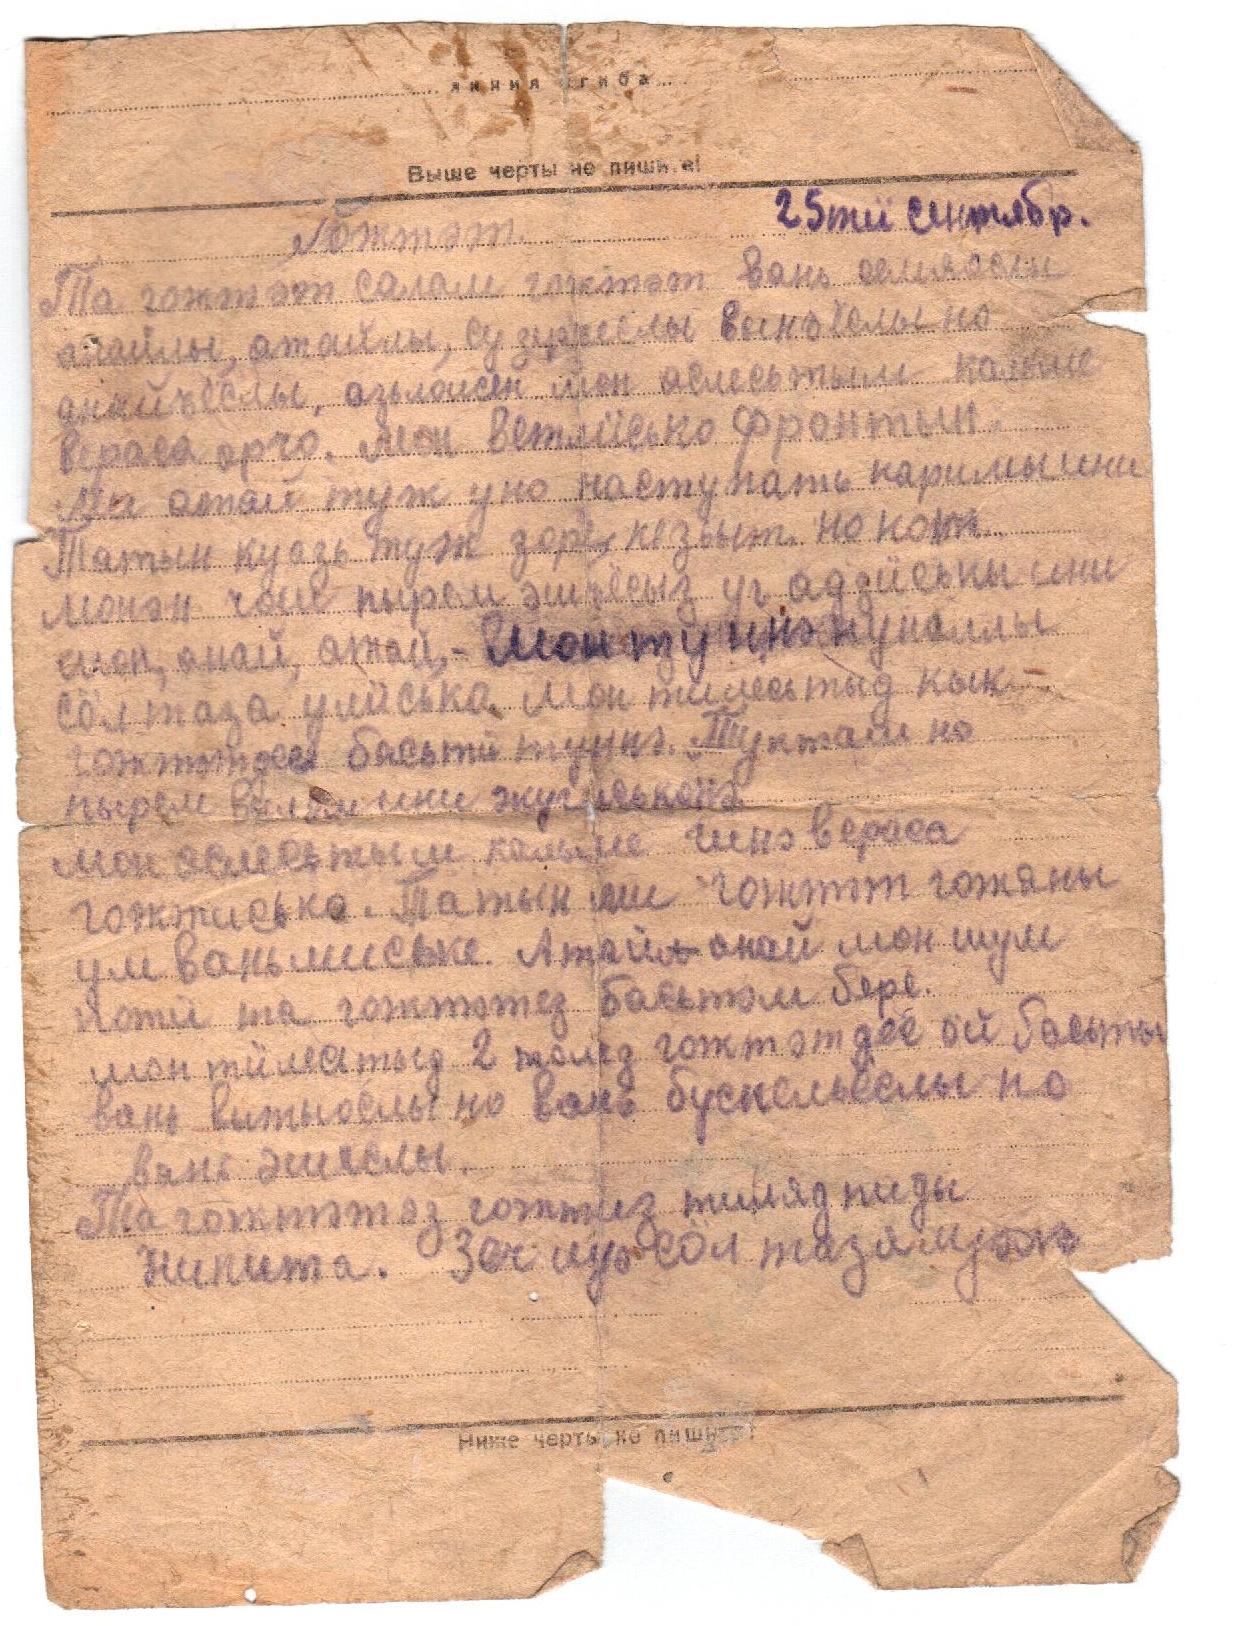 линия сгиба
Выше черты не пишите!
25тӥ сентябр.
Гожтэт.
Та гожтэт салам гожтэт вань семяослы
анайлы, атайлы, сузэръёслы вынъёслы но
апайъёслы, азьлойсен мон аслесьтым калыме
вераса орчо. Мон ветлӥсько фронтын.
Ми атай туж уно наступать каримы ини
Татын куазь туж зоре, кезьыт. но коть
монэн чош пырем эшъёсыз уг адӟӥськы ини
мон, анай, атай, - Мон туннэ нуналлы
сöл таза улӥсько. Мон тилесьтыд кык
гожтэтдес басьтӥ туннэ. Туктам но
пырем ини
мон аслесьтым калыме гинэ вераса
гожтисько. Татын ми гожтэт гожяны
ум ваньмиське. Атай анай мон шум
потӥ та гожтэтез басьтэм бере.
мон тӥлесьтыд 2 толэзь гожтэтдес öй басьты
вань но вань бускельёслы но
вань эшеслы.
Та гожтэтэз гожтӥз тиляд пиды
Никита. Зеч луэ сöл таза
Ниже черты не пишите!